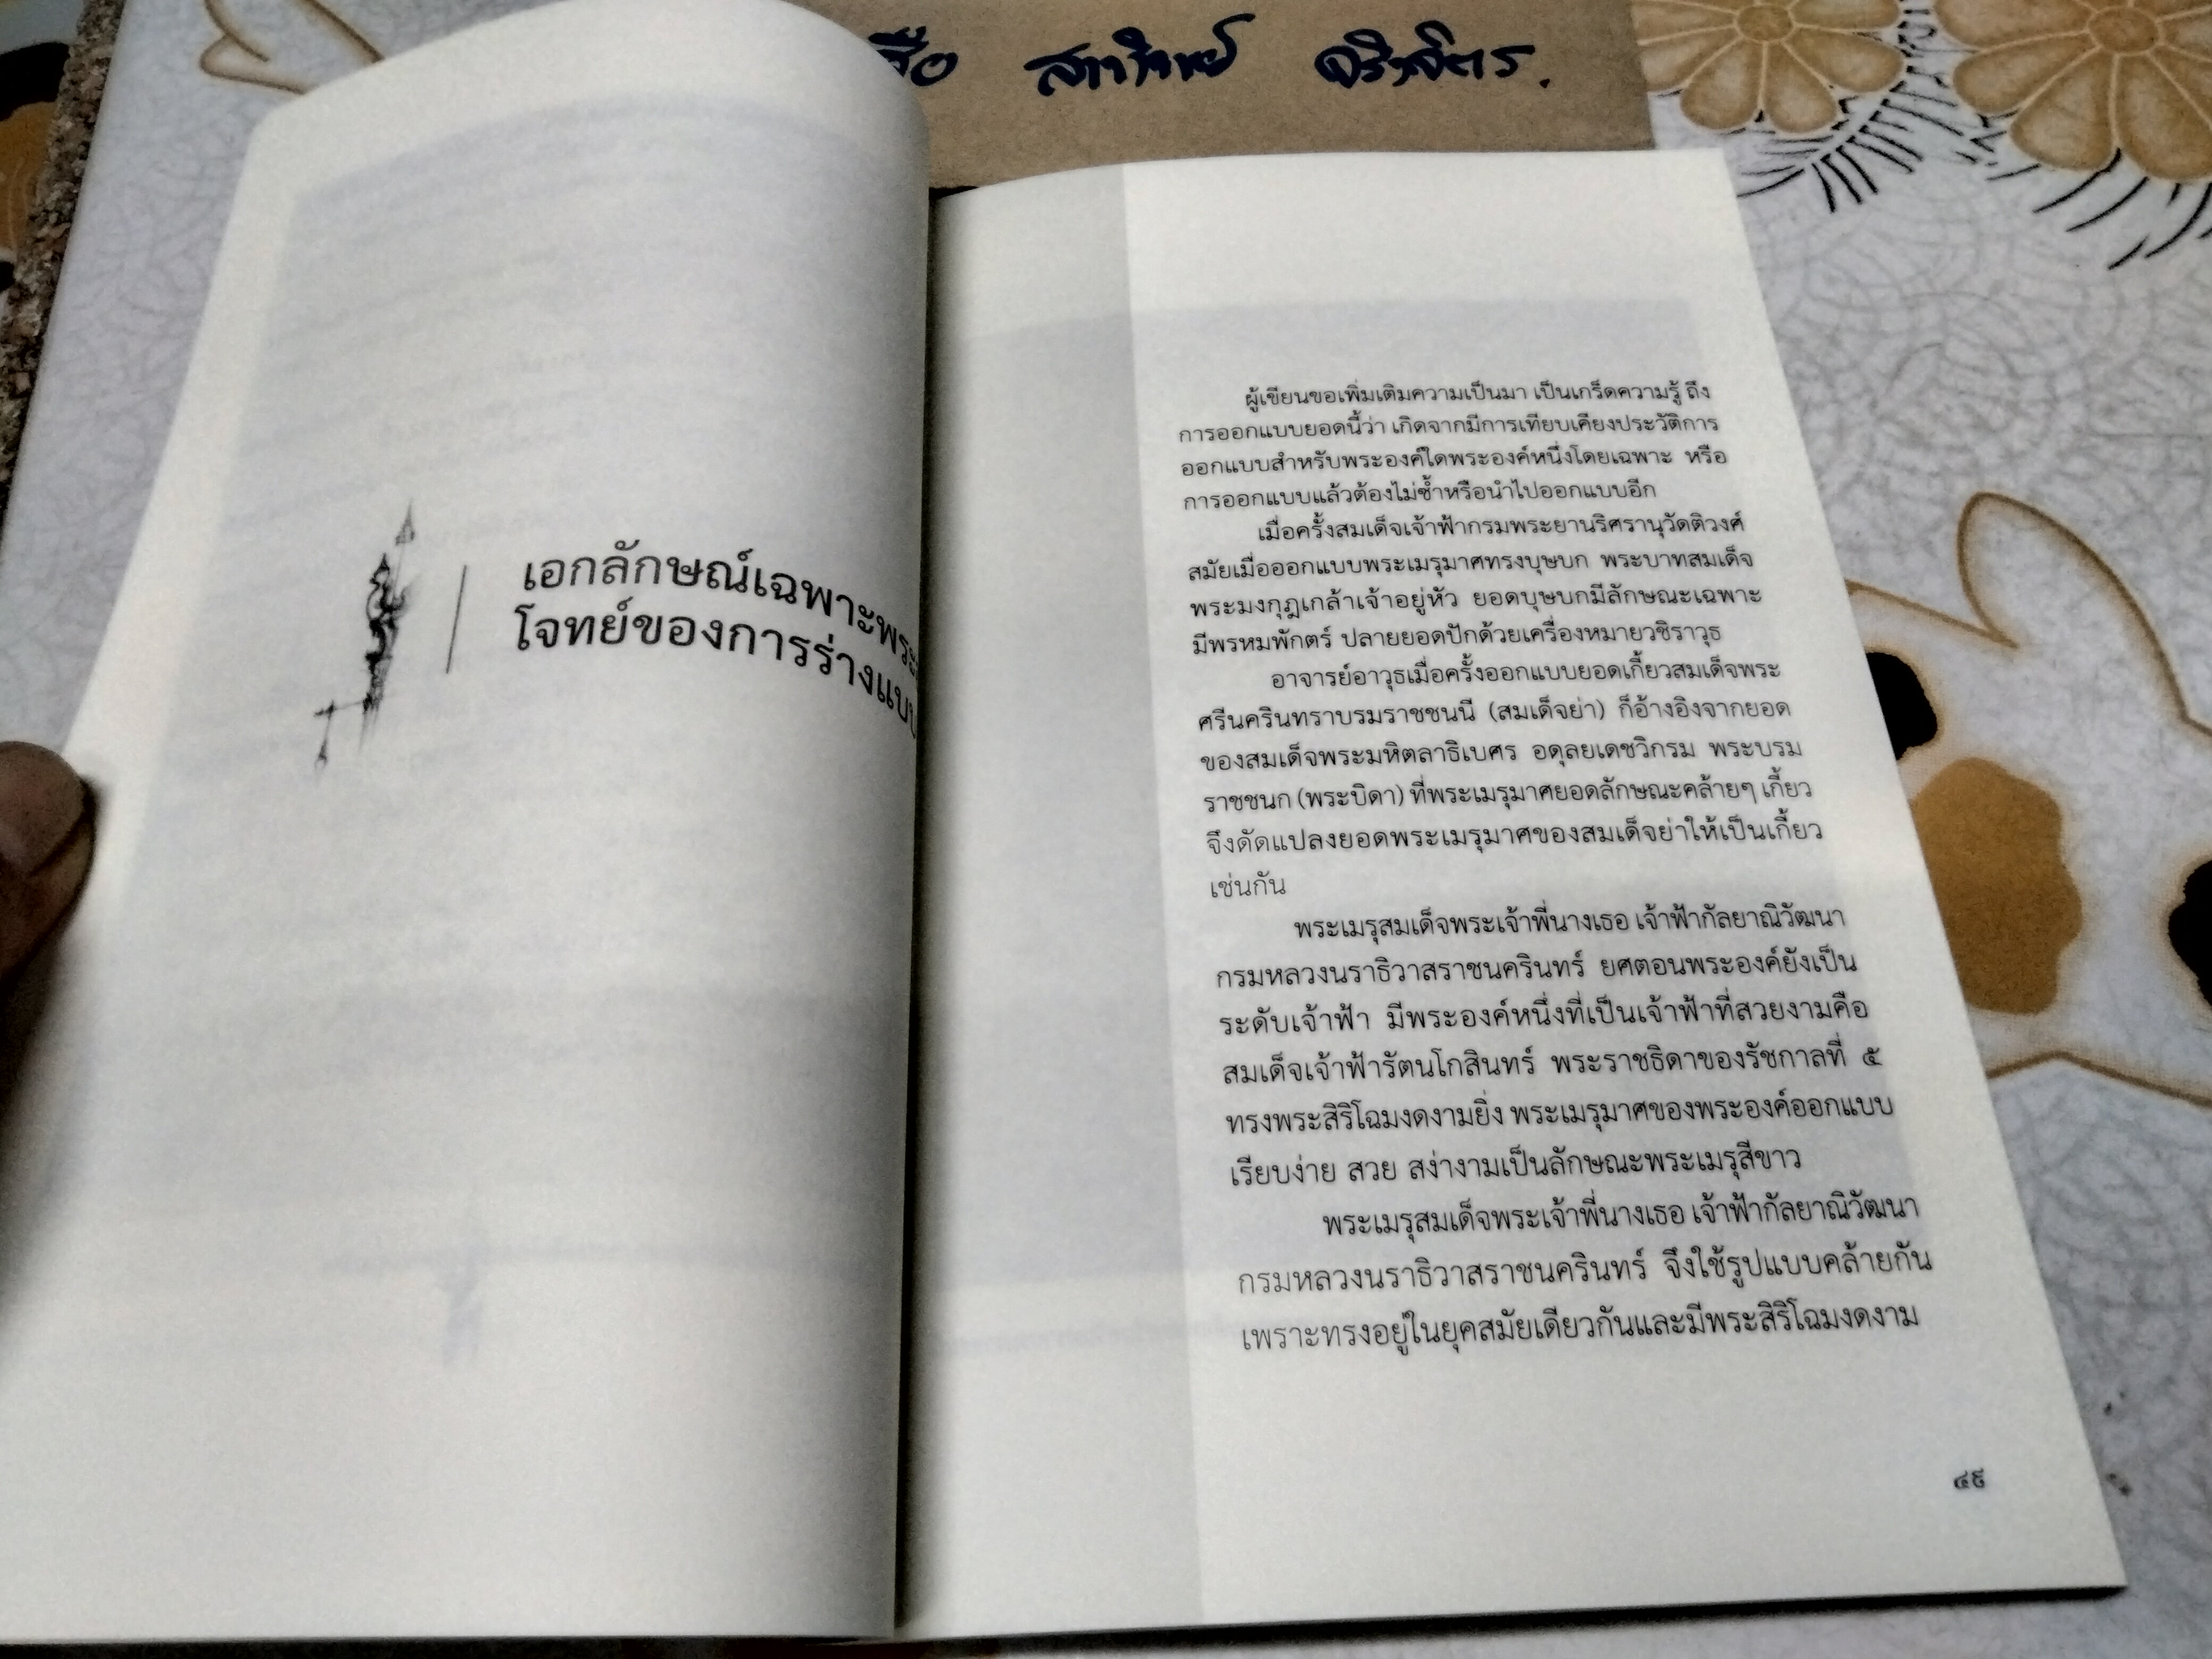 เอกลักษณ์เฉพาะพระ
โจทย์ของการร่างแบบ
ผู้เขียนขอเพิ่มเติมความเป็นมา เป็นเกร็ดความรู้ ถึง
การออกแบบยอดนี้ว่า เกิดจากมีการเทียบเคียงประวัติการ
ออกแบบสำหรับพระองค์ใดพระองค์หนึ่งโดยเฉพาะ หรือ
การออกแบบแล้วต้องไม่ซ้ำหรือนำไปออกแบบอีก
เมื่อครั้งสมเด็จเจ้าฟ้ากรมพระยานริศรานุวัดติวงศ์
สมัยเมื่อออกแบบพระเมรุมาศทรงบุษบก พระบาทสมเด็จ
พระมงกุฎเกล้าเจ้าอยู่หัว ยอดบุษบกมีลักษณะเฉพาะ
มีพรหมพักตร์ ปลายยอดปักด้วยเครื่องหมายวชิราวุธ
อาจารย์อาวุธเมื่อครั้งออกแบบยอดเกี้ยวสมเด็จพระ
ศรีนครินทราบรมราชชนนี (สมเด็จย่า) ก็อ้างอิงจากยอด
ของสมเด็จพระมหิตลาธิเบศร อดุลยเดชวิกรม พระบรม
ราชชนก (พระบิดา) ที่พระเมรุมาศยอดลักษณะคล้ายๆ เกี้ยว
จึงดัดแปลงยอดพระเมรุมาศของสมเด็จย่าให้เป็นเกี้ยว
เช่นกัน
พระเมรุสมเด็จพระเจ้าพี่นางเธอ เจ้าฟ้ากัลยาณิวัฒนา
กรมหลวงนราธิวาสราชนครินทร์ ยศตอนพระองค์ยังเป็น
ระดับเจ้าฟ้า มีพระองค์หนึ่งที่เป็นเจ้าฟ้าที่สวยงามคือ
สมเด็จเจ้าฟ้ารัตนโกสินทร์ พระราชธิดาของรัชกาลที่ ๕
ทรงพระสิริโฉมงดงามยิ่ง พระเมรุมาศของพระองค์ออกแบบ
เรียบง่าย สวย สง่างามเป็นลักษณะพระเมรุสีขาว
พระเมรุสมเด็จพระเจ้าพี่นางเธอ เจ้าฟ้ากัลยาณิวัฒนา
กรมหลวงนราธิวาสราชนครินทร์ จึงใช้รูปแบบคล้ายกัน
เพราะทรงอยู่ในยุคสมัยเดียวกันและมีพระสิริโฉมงดงาม
๔๙